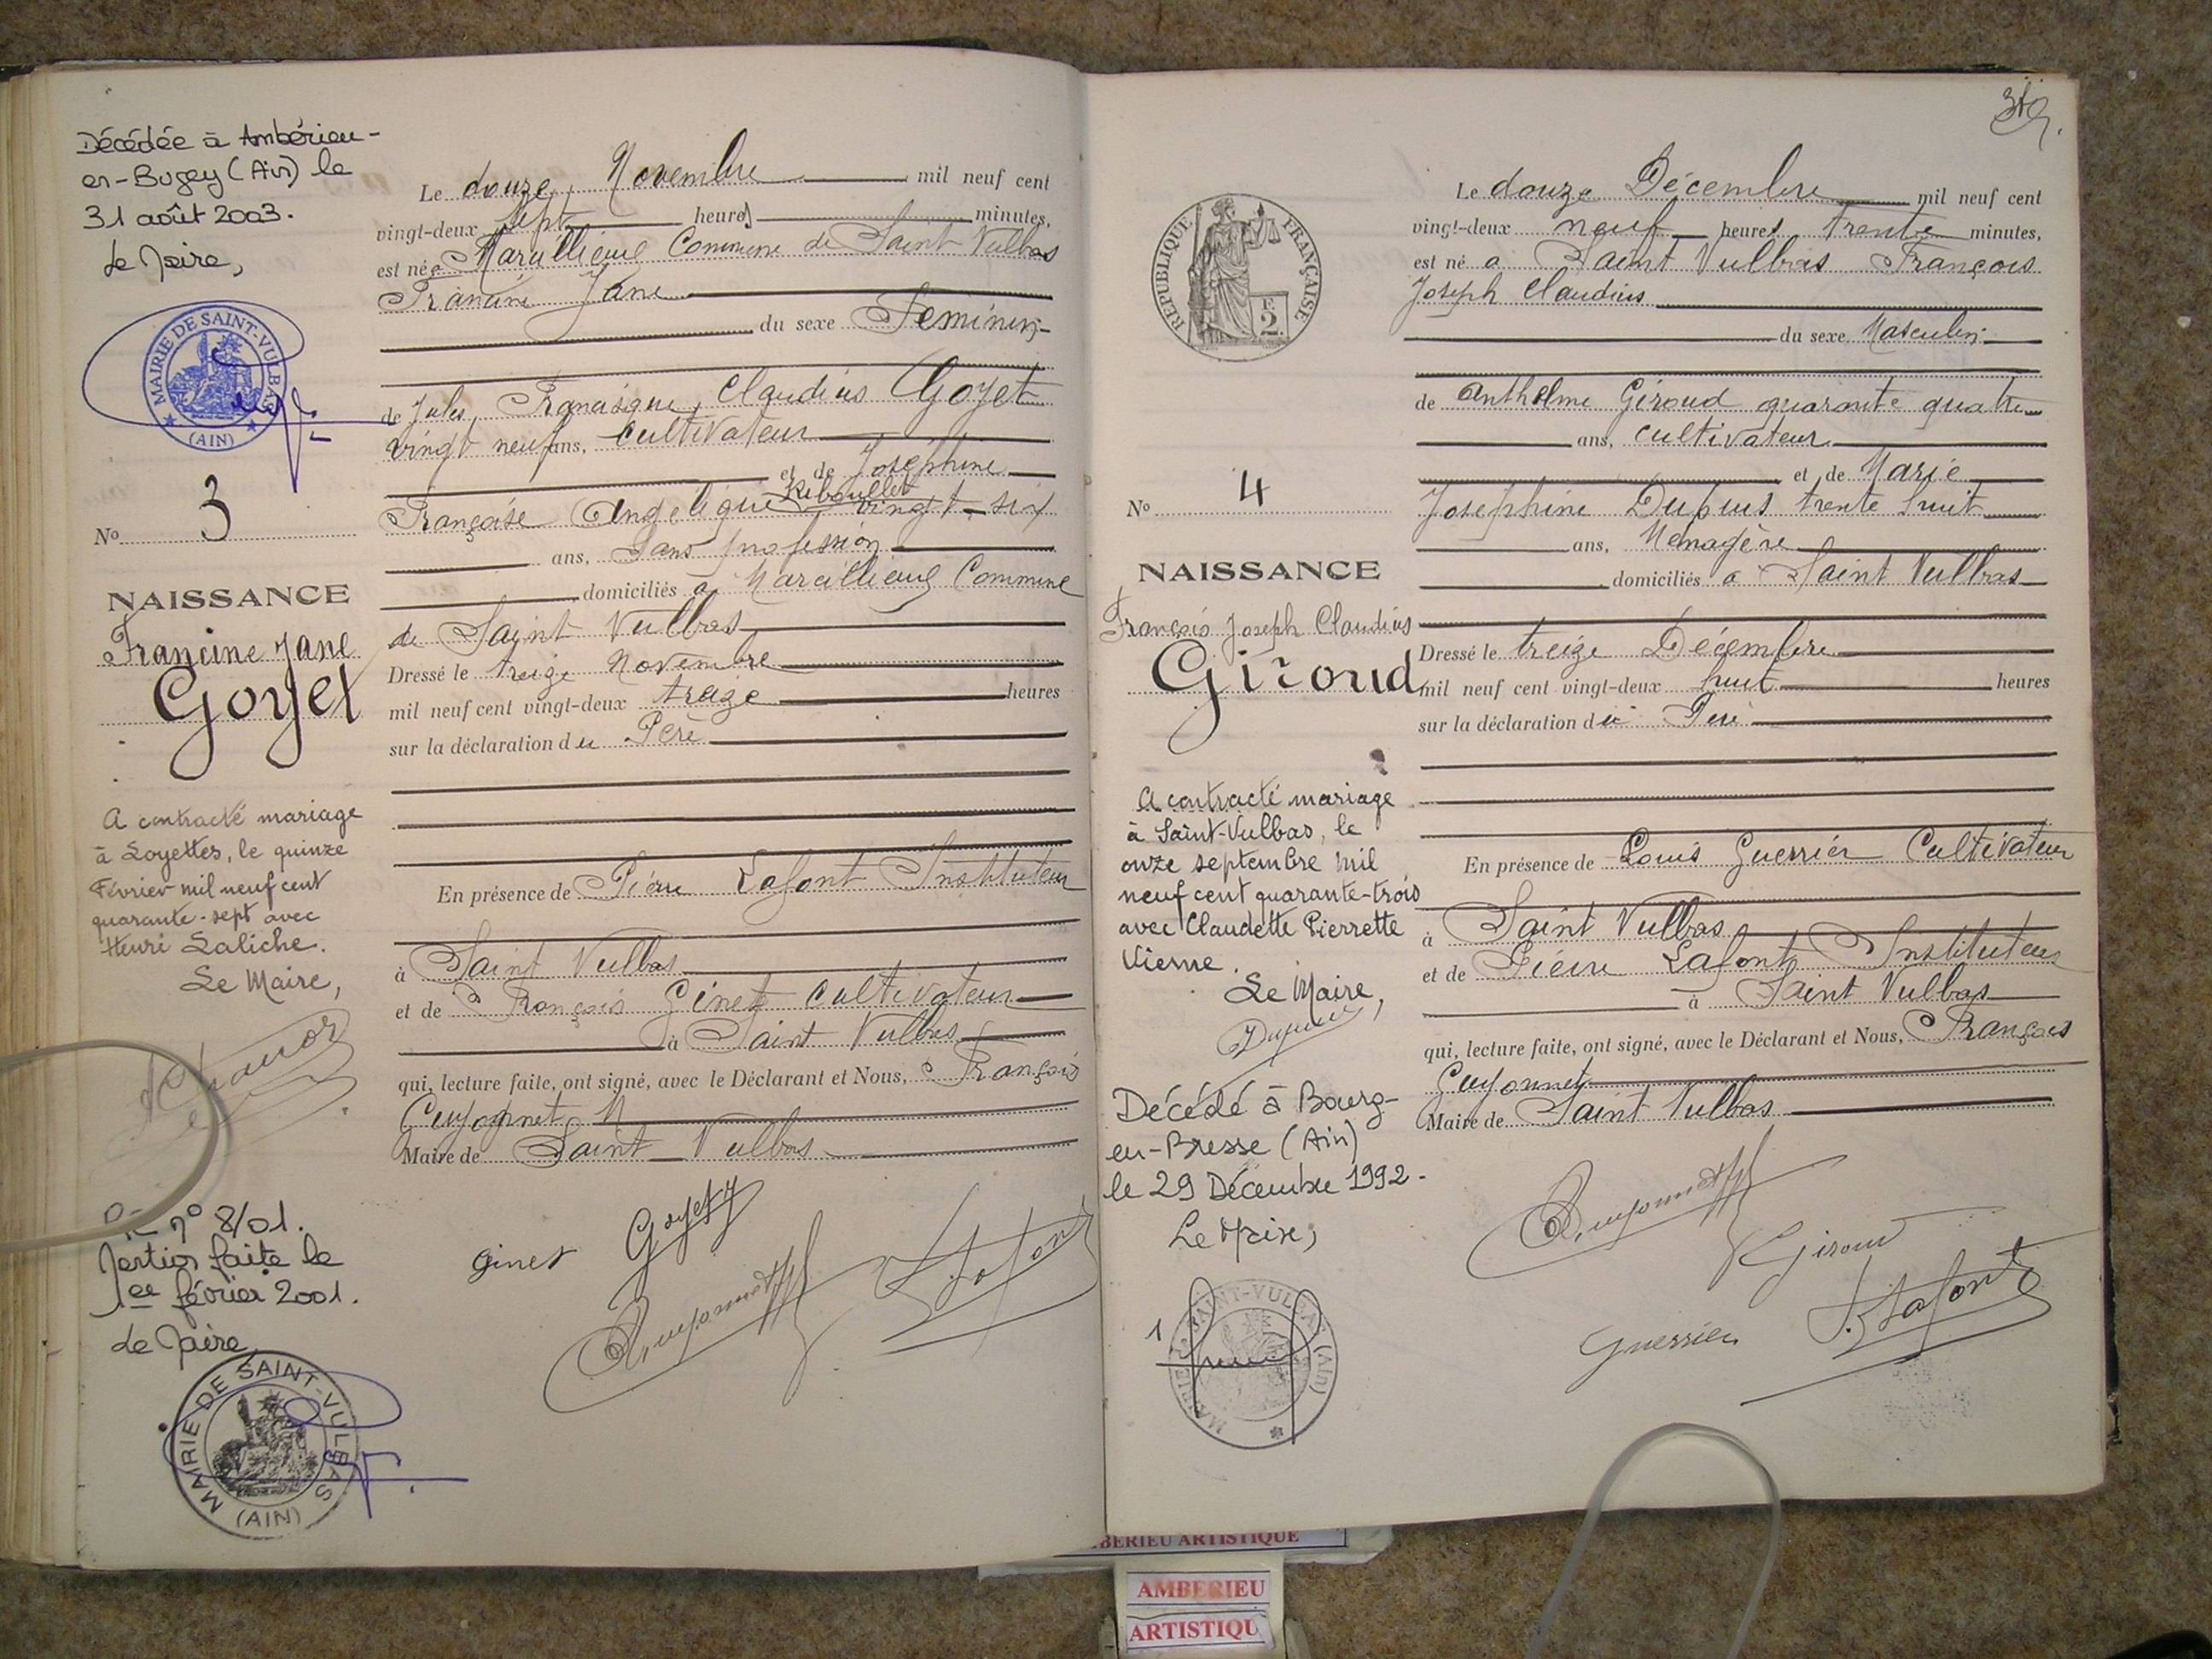 Décédée à Ambérieu-
en-Bugey (Ain) le
31 août 2003.
Le Maire,
MAIRIE DE SAINT-VULBAS
(AIN)
No 3
NAISSANCE
Francine Jane
Goyet
A contracté mariage
à Loyettes, le quinze
Février mil neuf cent
quarante-sept avec
Henri Laliche.
Le Maire,
n° 8/01.
Mention faite le
1er février 2001.
Le Maire,
MAIRIE DE SAINT-VULBAS
(AIN)
Le douze Novembre mil neuf cent
vingt-deux sept heures minutes,
est née à Marcillieux Commune de Saint Vulbas
Francine Jane
du sexe Féminin
de Jules, Francisque, Claudius Goyet
vingt neuf ans, cultivateur
et de Joséphine
Reboullet
Françoise Angelique vingt-six
ans, Sans profession
domiciliés à Marcillieux Commune
de Saint Vulbas
Dressé le treize Novembre
mil neuf cent vingt-deux treize heures
sur la déclaration du Père
En présence de Piérre Lafont Instituteur
à Saint Vulbas
et de François Ginet cultivateur
à Saint Vulbas
qui, lecture faite, ont signé, avec le Déclarant et Nous, François
Guyonnet
Maire de Saint Vulbas
Ginet Goyet J
Guyonnet Lafont
319
RÉPUBLIQUE FRANÇAISE
E
2
No 4
NAISSANCE
François Joseph Claudius
Giroud
A contracté mariage
à Saint-Vulbas, le
onze septembre mil
neuf cent quarante-trois
avec Claudette Pierrette
Vierne.
Le Maire,
Décédé à Bourg-
en-Bresse (Ain)
le 29 Décembre 1992.
Le Maire,
MAIRIE DE SAINT-VULBAS (Ain)
Le douze Décembre mil neuf cent
vingt-deux neuf heures trente minutes,
est né à Saint Vulbas François
Joseph Claudius
du sexe Masculin
de Anthelme Giroud quarante quatre
ans, cultivateur
et de Marie
Josephine Dupuis trente huit
ans, Menagère
domiciliés à Saint Vulbas
Dressé le treize Décembre
mil neuf cent vingt-deux huit heures
sur la déclaration du Père
En présence de Louis Guerrier Cultivateur
à Saint Vulbas
et de Piérre Lafont Instituteur
à Saint Vulbas
qui, lecture faite, ont signé, avec le Déclarant et Nous, François
Guyonnet
Maire de Saint Vulbas
Guyonnet
Giroud
Guerrier Lafont
BERIEU ARTISTIQUE
AMBERIEU
ARTISTIQU